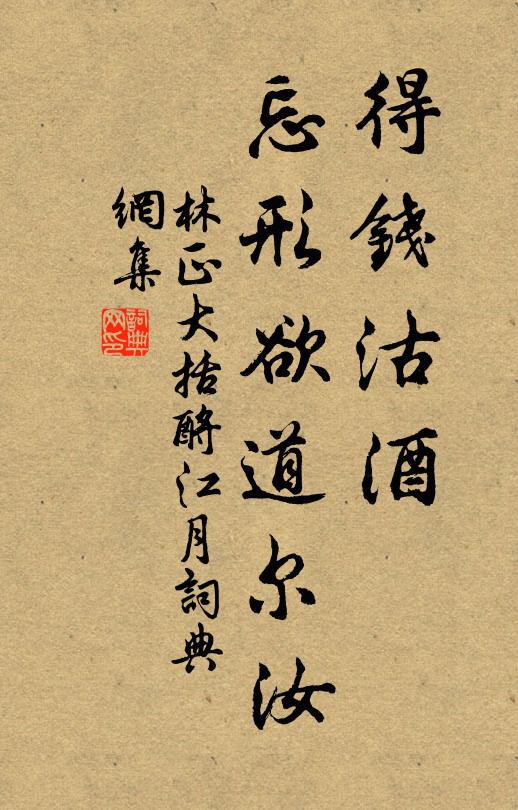 得錢沽酒
忘形欲道尔汝
林正大括酹江月詞典
網集
詞典
网印